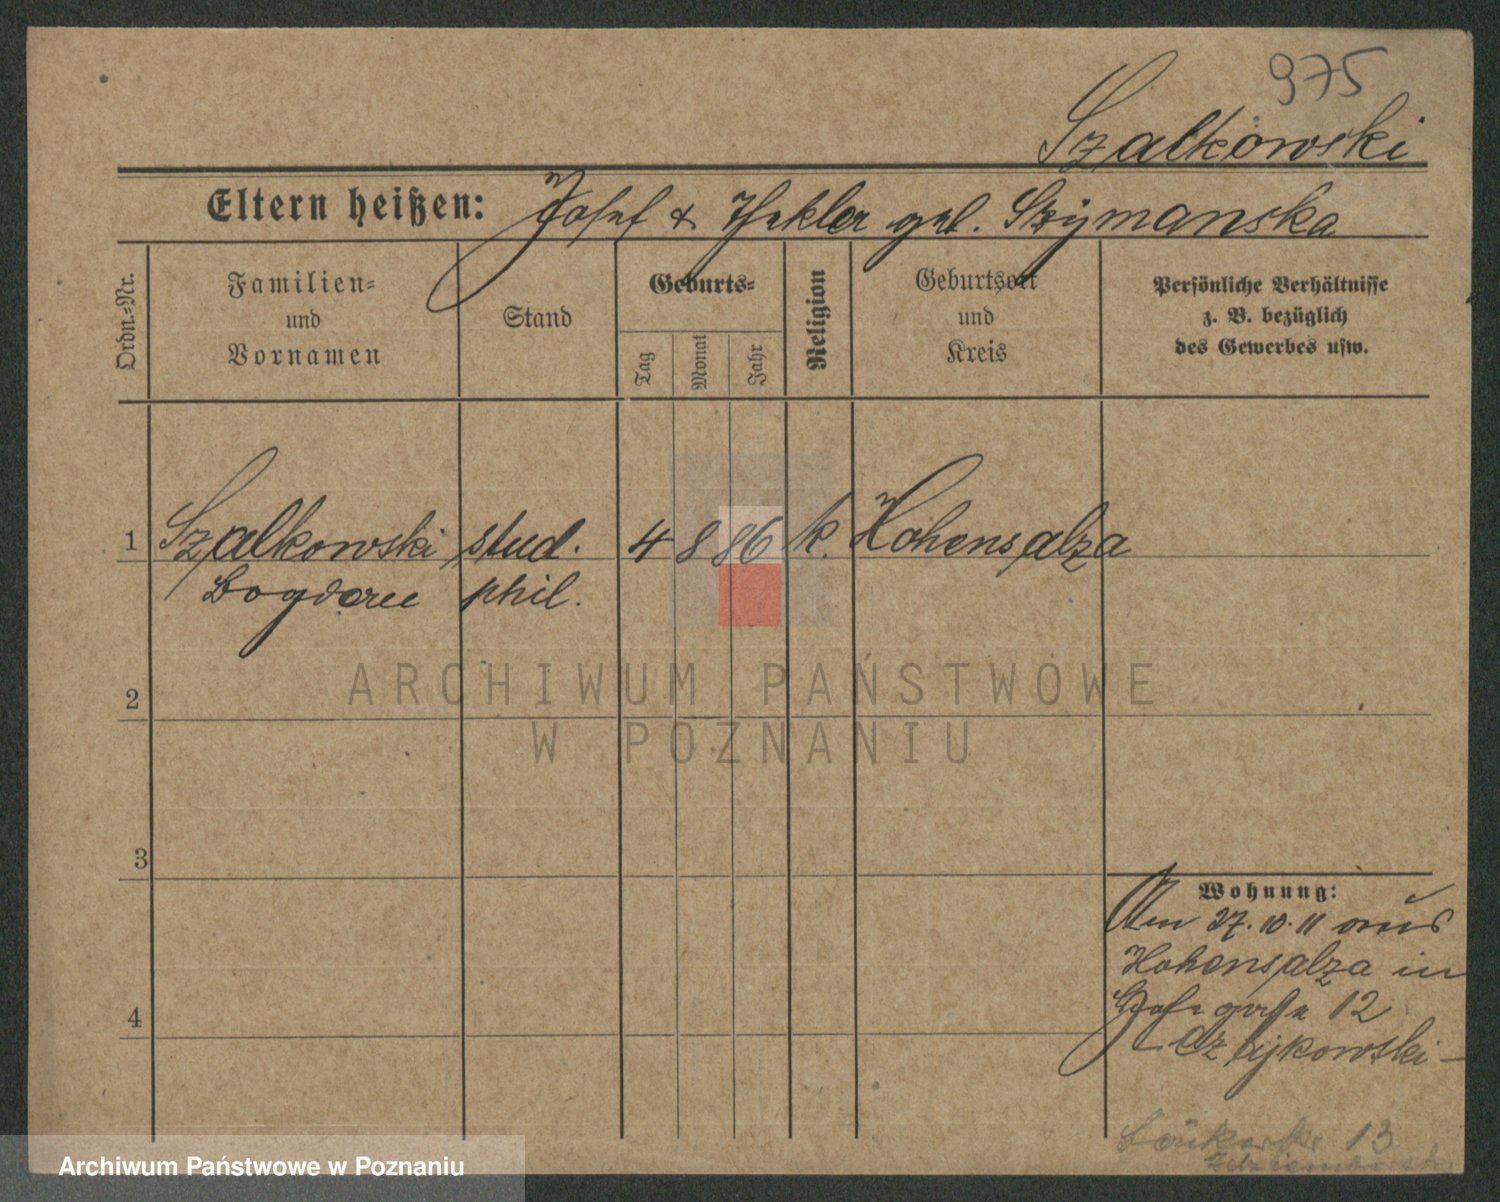 975
Szalkowski
Eltern heißen: Josef & Thekla geb. Szymanska
Ordn.-Nr.
Familien-
und
Vornamen
Stand
Geburts-
Tag
Monat
Jahr
Religion
Geburtsort
und
Kreis
Persönliche Verhältnisse
z. B. bezüglich
des Gewerbes usw.
1 Szalkowski stud. 4 8 86 k. Hohensalza
Bogdan phil.
2
3
4
Wohnung:
Am 27.10.11 aus
Hohensalza in
12
Czajkowski
13
ARCHIWUM PAŃSTWOWE
W POZNANIU
Archiwum Państwowe w Poznaniu